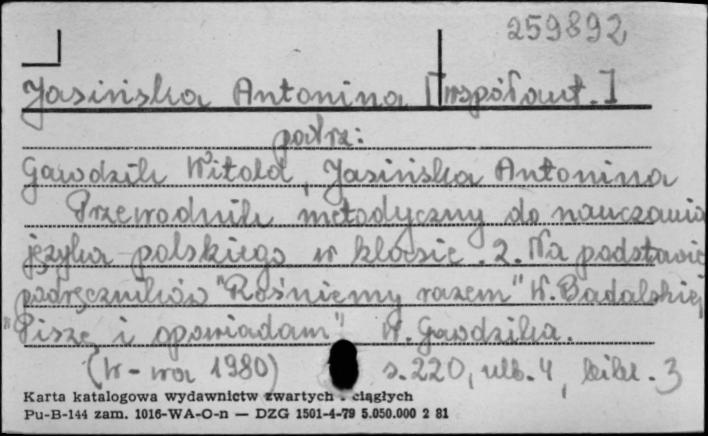 259892
Jasińska Antonina [współaut.]
patrz:
Gawdzik Witold, Jasińska Antonina
Przewodnik metodyczny do nauczania
języka polskiego w klasie 2. Na podstawie
podręczników "Rośniemy razem" W. Badalskiej
"Piszę i opowiadam" W. Gawdzika.
(W-wa 1980) s. 220, nlb. 4, bibl. 3
Karta katalogowa wydawnictw zwartych ciągłych
Pu-B-144 zam. 1016-WA-O-n — DZG 1501-4-79 5.050.000 2 81